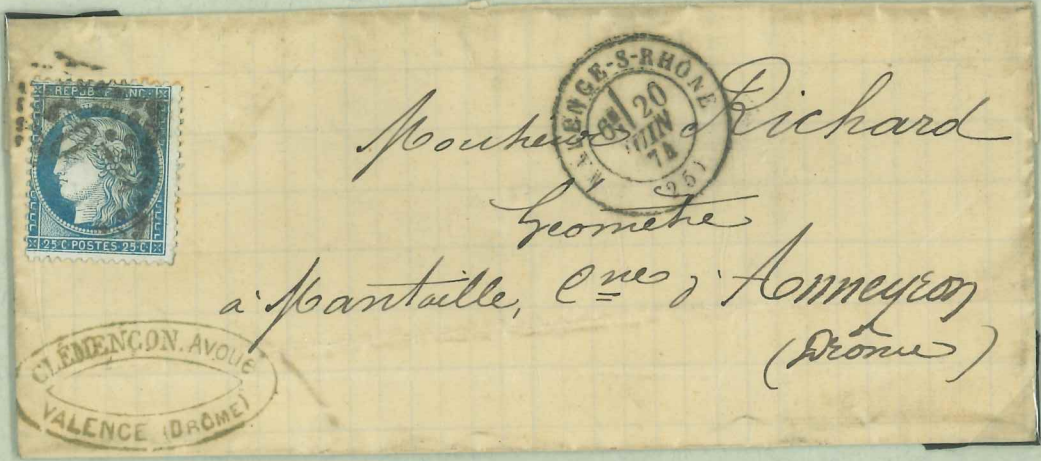 REPUB·FRANC·
25·C·POSTES·25·C·
VALENCE-S-RHÔNE
6E
20
JUIN
74
(25)
Monsieur Richard
Géomètre
à Mantaille, Cne d'Anneyron
(Drôme)
CLÉMENÇON. AVOUÉ
VALENCE (DRÔME)